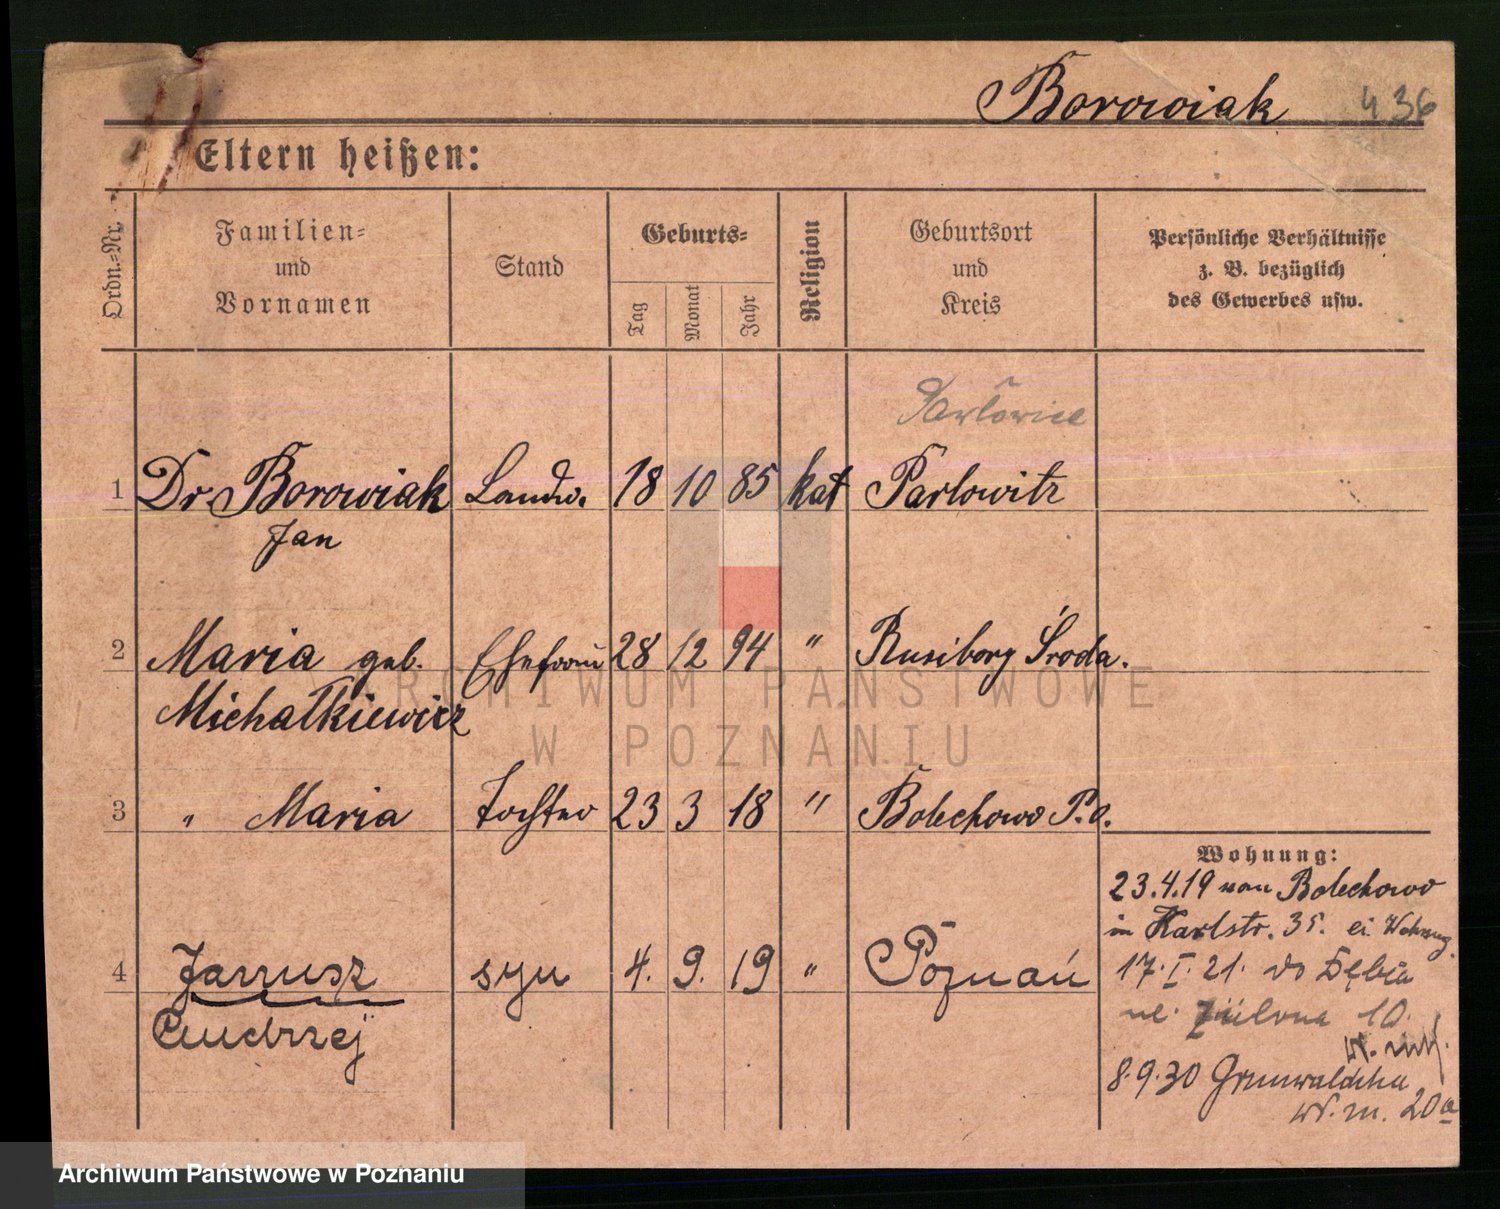 Borowiak 436
Eltern heißen:
Ordn.-Nr.
Familien-
und
Vornamen
Stand
Geburts-
Tag
Monat
Jahr
Religion
Geburtsort
und
Kreis
Persönliche Verhältnisse
z. B. bezüglich
des Gewerbes usw.
1 Dr. Borowiak Landw. 18 10 85 kat Parlowitz
Jan
2 Maria geb. Ehefrau 28 12 94 " Rusibory Środa.
Michałkiewicz
3 " Maria Tochter 23 3 18 " Bolechowo P.O.
Wohnung:
23.4.19 von Bolechowo
in Karlstr. 35. ei. Wohnung.
4 Janusz syn 4. 9. 19 " Poznań
Andrzej
17.I.21. do Dębia
ul. Zielona 10.
8.9.30 Grunwaldzka
W. m. 20a
ARCHIWUM PAŃSTWOWE
W POZNANIU
Archiwum Państwowe w Poznaniu